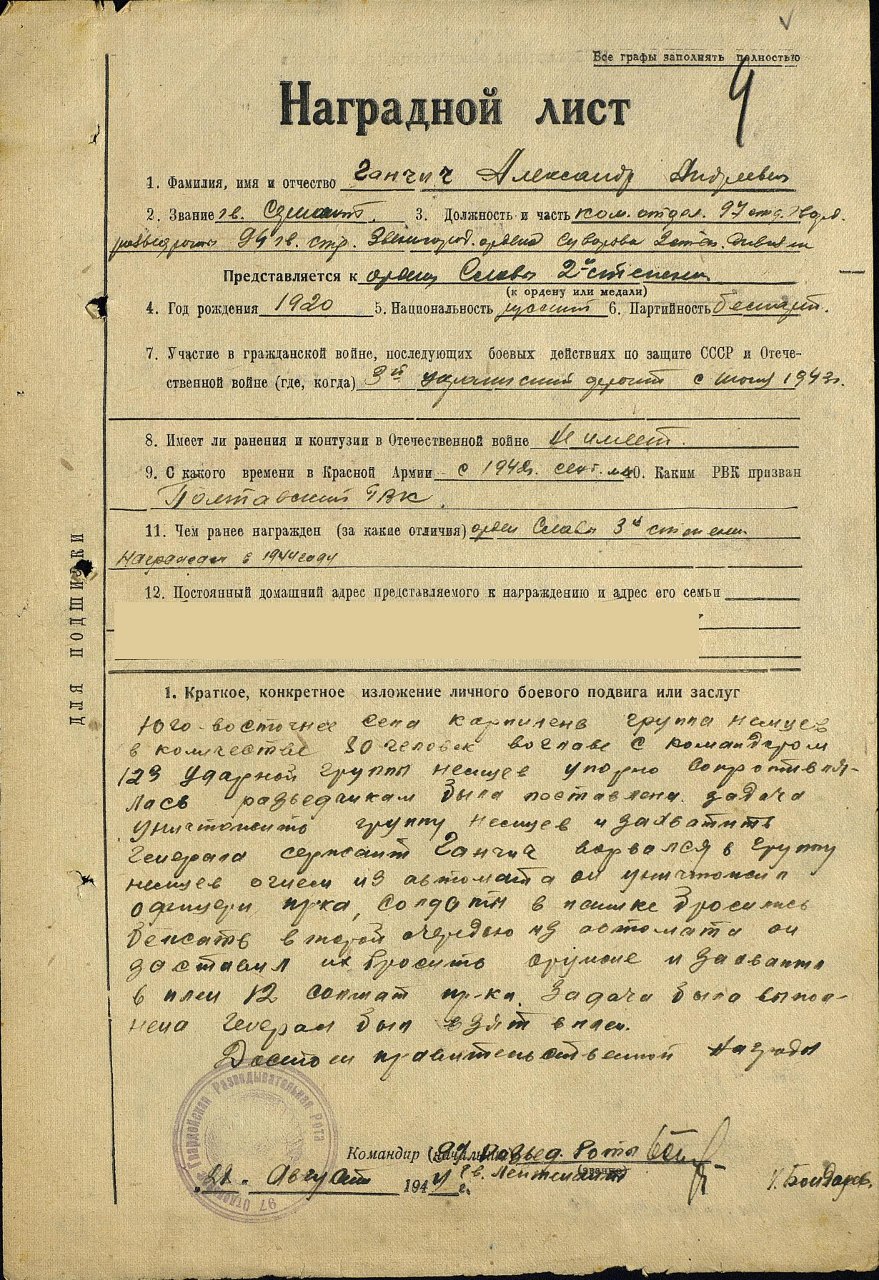 Все графы заполнять полностью
Наградной лист
1. Фамилия, имя и отчество Ганчич Александр Андреевич
2. Звание гв. Сержант. 3. Должность и часть ком. отдел. 97 отд. гвард.
разведроты 94 гв. стр. Звенигород. ордена Суворова 2 степ. дивизии
Представляется к ордену Славы 2й степени
(к ордену или медали)
4. Год рождения 1920 5. Национальность русский 6. Партийность беспарт.
7. Участие в гражданской войне, последующих боевых действиях по защите СССР и Отече-
ственной войне (где, когда) 3й украинский фронт с июня 1943г.
8. Имеет ли ранения и контузии в Отечественной войне Не имеет.
9. С какого времени в Красной Армии с 1942г. сент. м. 10. Каким РВК призван
Полтавский РВК.
11. Чем ранее награжден (за какие отличия) орден Славы 3й степени
награжден в 1944 году
12. Постоянный домашний адрес представляемого к награждению и адрес его семьи
ДЛЯ ПОДШИВКИ
1. Краткое, конкретное изложение личного боевого подвига или заслуг
Юго-восточнее села группа немцев
в количестве 30 человек во главе с командиром
123 ударной группы немцев упорно сопротивля-
лась разведчикам была поставлена задача
уничтожить группу немцев и захватить
генерала сержант Ганчич ворвался в группу
немцев огнем из автомата он уничтожил
офицера пр-ка, солдаты в панике бросились
бежать второй очередью из автомата он
заставил их бросить оружие и захватил
в плен 12 солдат пр-ка. Задача была выпол-
нена генерал был взят в плен.
Достоин правительственной награды
Командир (начальник) 97 Развед. Роты
(звание)
гв. Лейтенант
21. Август 1944 г.
Бондарев.
97 Отдельная Гвардейская Разведывательная Рота